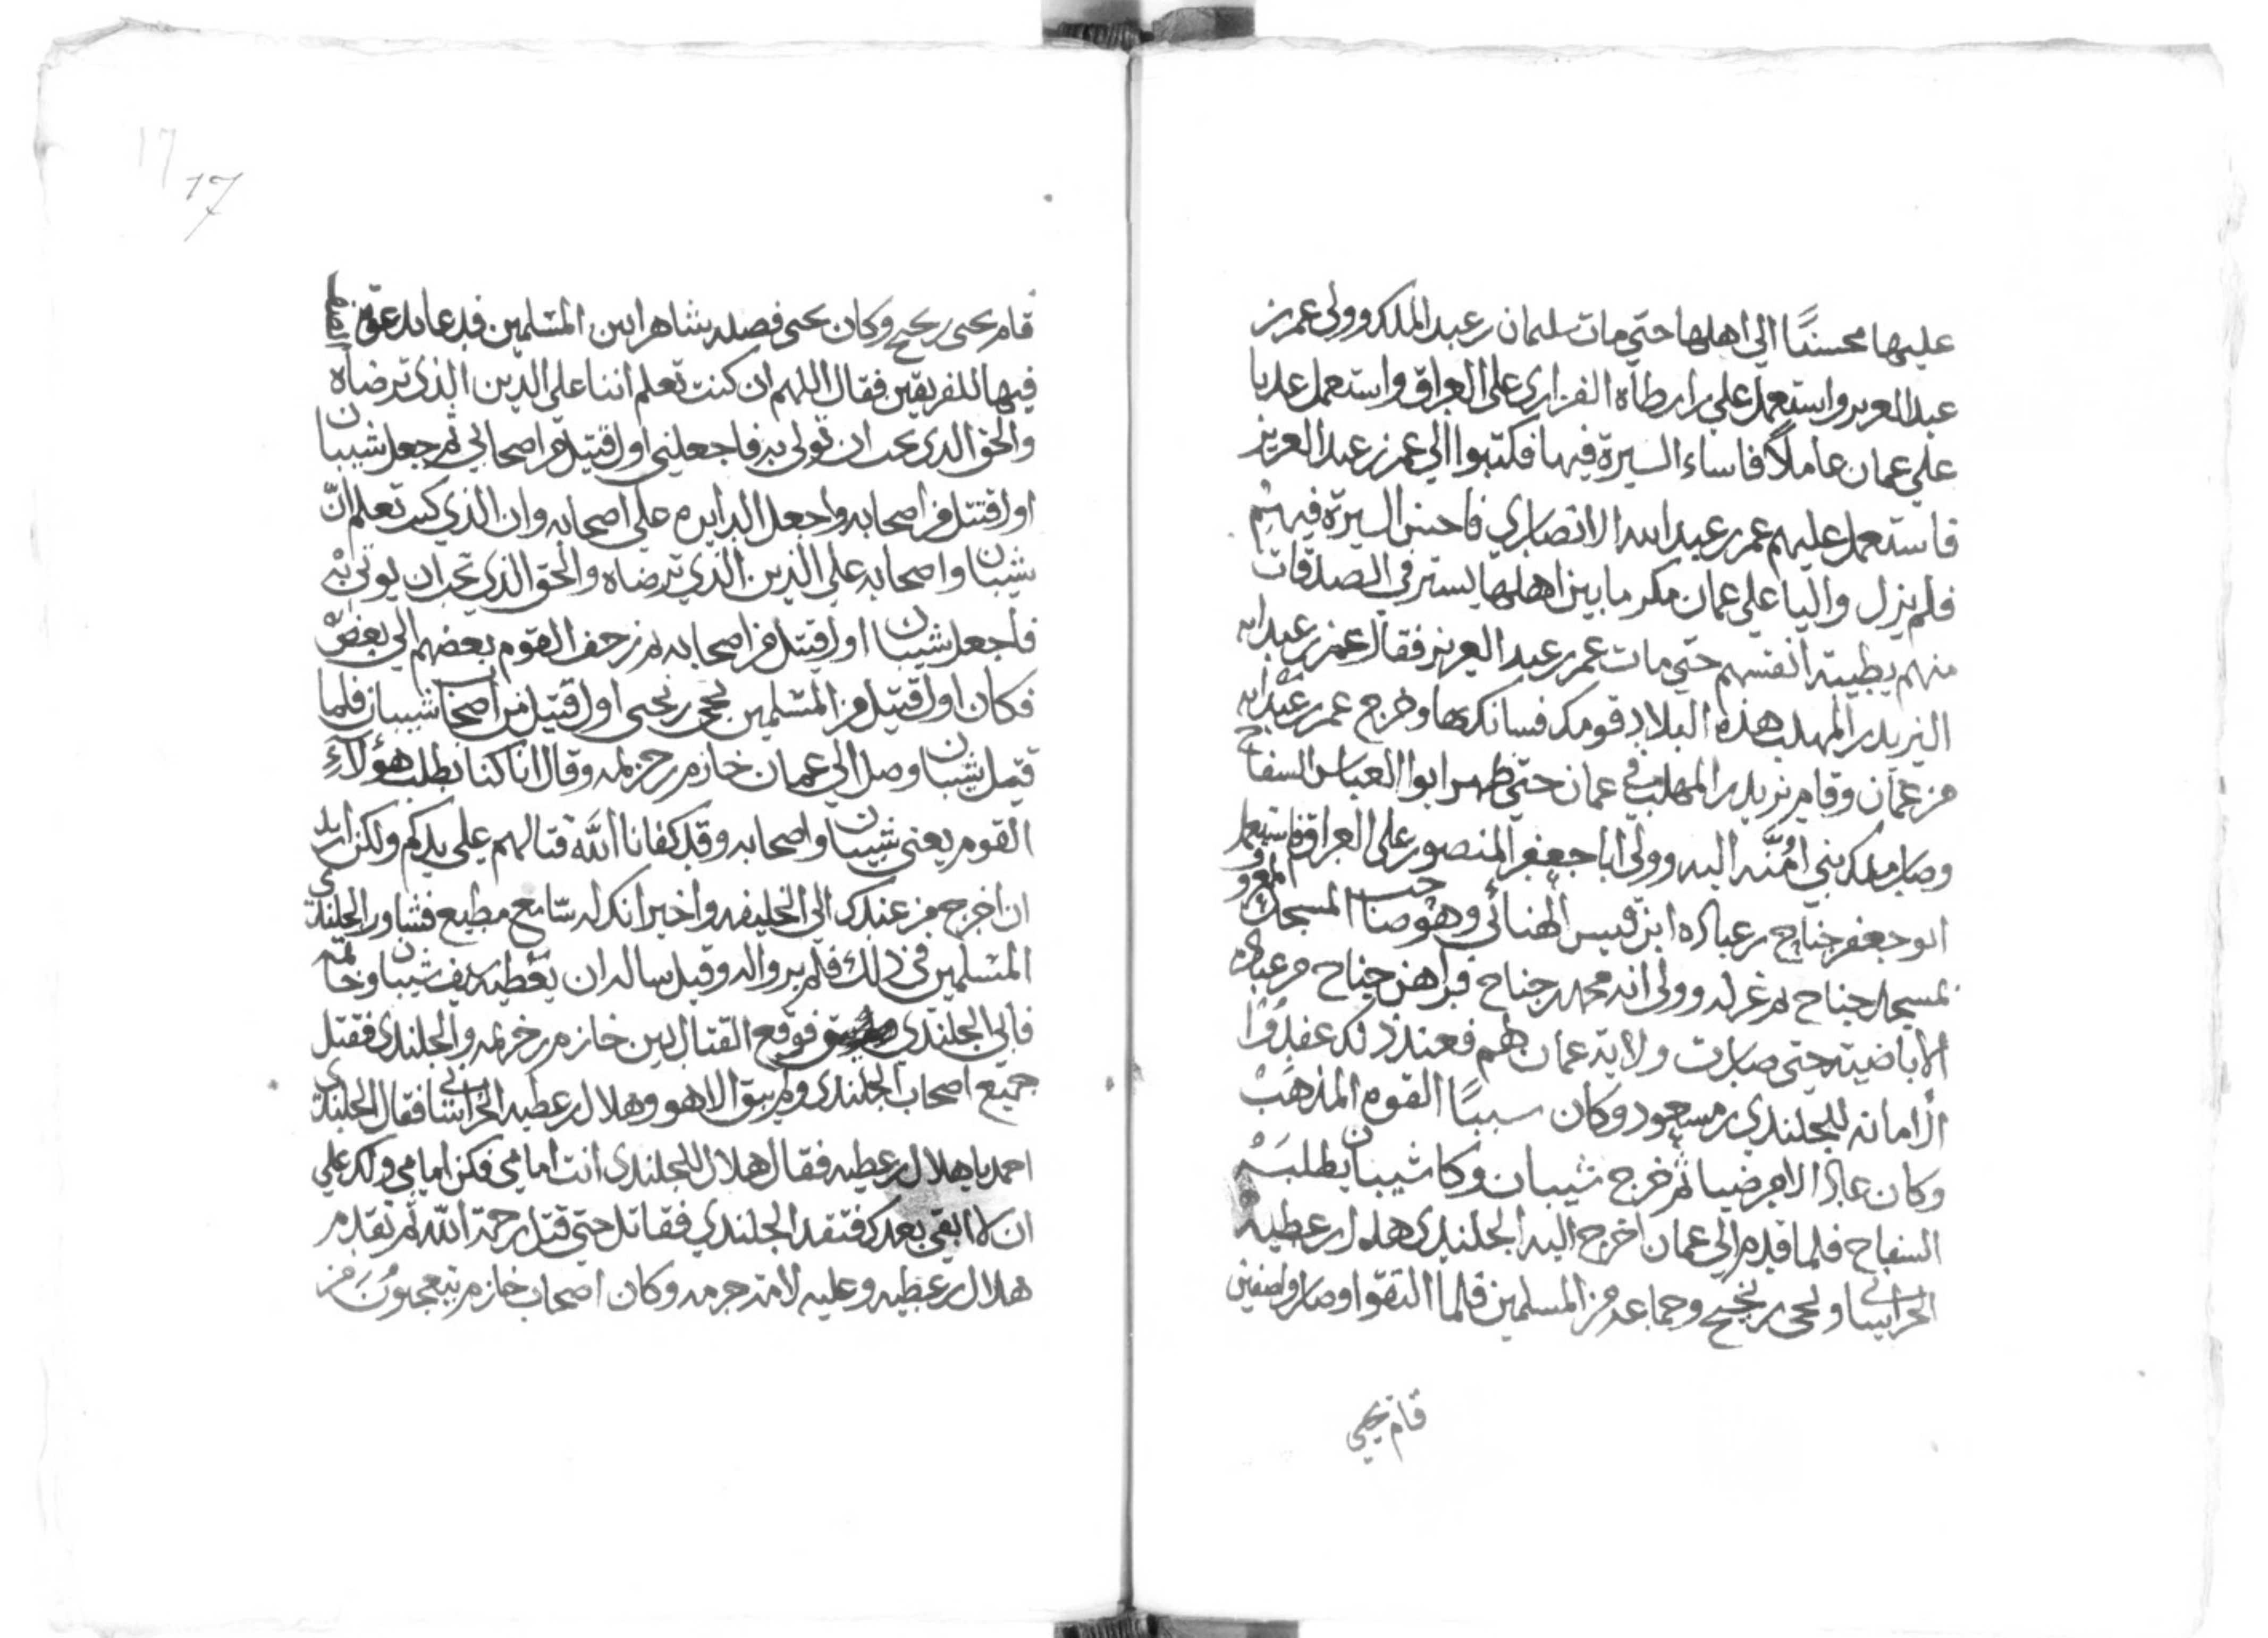 عليها محسنًا الي اهلها حتي مات سليمان بن عبد الملك وولي عمر بن
عبد العزيز واستعمل علي بن ارطاة الفزاري على العراق واستعمل عديا
علي عمان عاملاً فاساء السيرة فيها فكتبوا الي عمر بن عبد العزيز
فاستعمل عليهم عمر بن عبد الله الانصاري فاحسن السيرة فيهم
فلم يزل واليا علي عمان مكرما بين اهلها يستوفي الصدقات
منهم بطيبة انفسهم حتي مات عمر بن عبد العزيز فقال عمر بن عبد الله
لزيد بن المهلب هذه البلاد قومك فسانكها وخرج عمر بن عبد الله
من عمان وقام يزيد بن المهلب في عمان حتي ظهر ابوا العباس السفاح
وصار ملك بني اُمَيَّه اليه وولي ابا جعفر المنصور على العراق فاستعمل
ابو جعفر جناح بن عباده ابن قيس الهنائي وهو صاحب المسجد المعروف
بمسجد جناح ثم عزله وولي ابنه محمد بن جناح فداهن جناح بن عباده
الأباضية حتى صارت ولاية عمان لهم فعند ذلك عقدُوْا
الامامة للجلندي بن مسعود وكان سببًا القوم المذهب
وكان عادلا مرضيا ثم خرج شيبان وكان شيبان يطلبه
السفاح فلما قدم الي عمان اخرج اليه الجلندي هلال بن عطيه
الخراساني ويحي بن نجيح وجماعه من المسلمين فلما التقوا وصاروا صفين
قام يحيي
قام يحيى بن نجيح وكان يحيى فضله شاهرا بين المسلمين فدعا بدعوة
فيها للفريقين فقال اللهم ان كنت تعلم اننا على الدين الذي ترضاه
والحق الذي تحب ان نولي به فاجعلني اول قتيل من اصحابي ثم جعل شيبان
اول قتيل من اصحابه واجعل الدايره علي اصحابه وان الذي كنت تعلم انّ
شيبان واصحابه علي الدين الذي ترضاه والحق الذي تحب ان يوتى به
فاجعل شيبان اول قتيل من اصحابه ثم زحف القوم بعضهم الي بعض
فكان اول قتيل من المسلمين يحيى بن نجيح اول قتيل من اصحاب شيبان فلما
قتل شيبان وصل الي عمان خازم بن خزيمه وقال انا كنا نطلب هؤلاءِ
القوم يعني شيبان واصحابه وقد كفانا اللَّه قتالهم علي يدكم ولكن اريد
ان اخرج من عندك الى الخليفه واخبر انك له سامع مطيع فشاور الجلندي
المسلمين في ذلك فلم يروا له وقيل ساله ان يعطيه سيف شيبان وخاتمه
فابى الجلندي فوقع القتال بين خازم بن خزيمه والجلندي فقتل
جميع اصحاب الجلندي ولم يبق الا هو وهلال بن عطيه الخراساني فقال الجلندي
احمل يا هلال بن عطيه فقال هلال للجلندي انت امامي فكن امامي ولك علي
ان لا ابقى بعدك فتقدم الجلندي فقاتل حتي قتل رحمة الله ثم تقدم
هلال بن عطيه وعليه لامة حربه وكان اصحاب خازم يتعجبونَ من
17